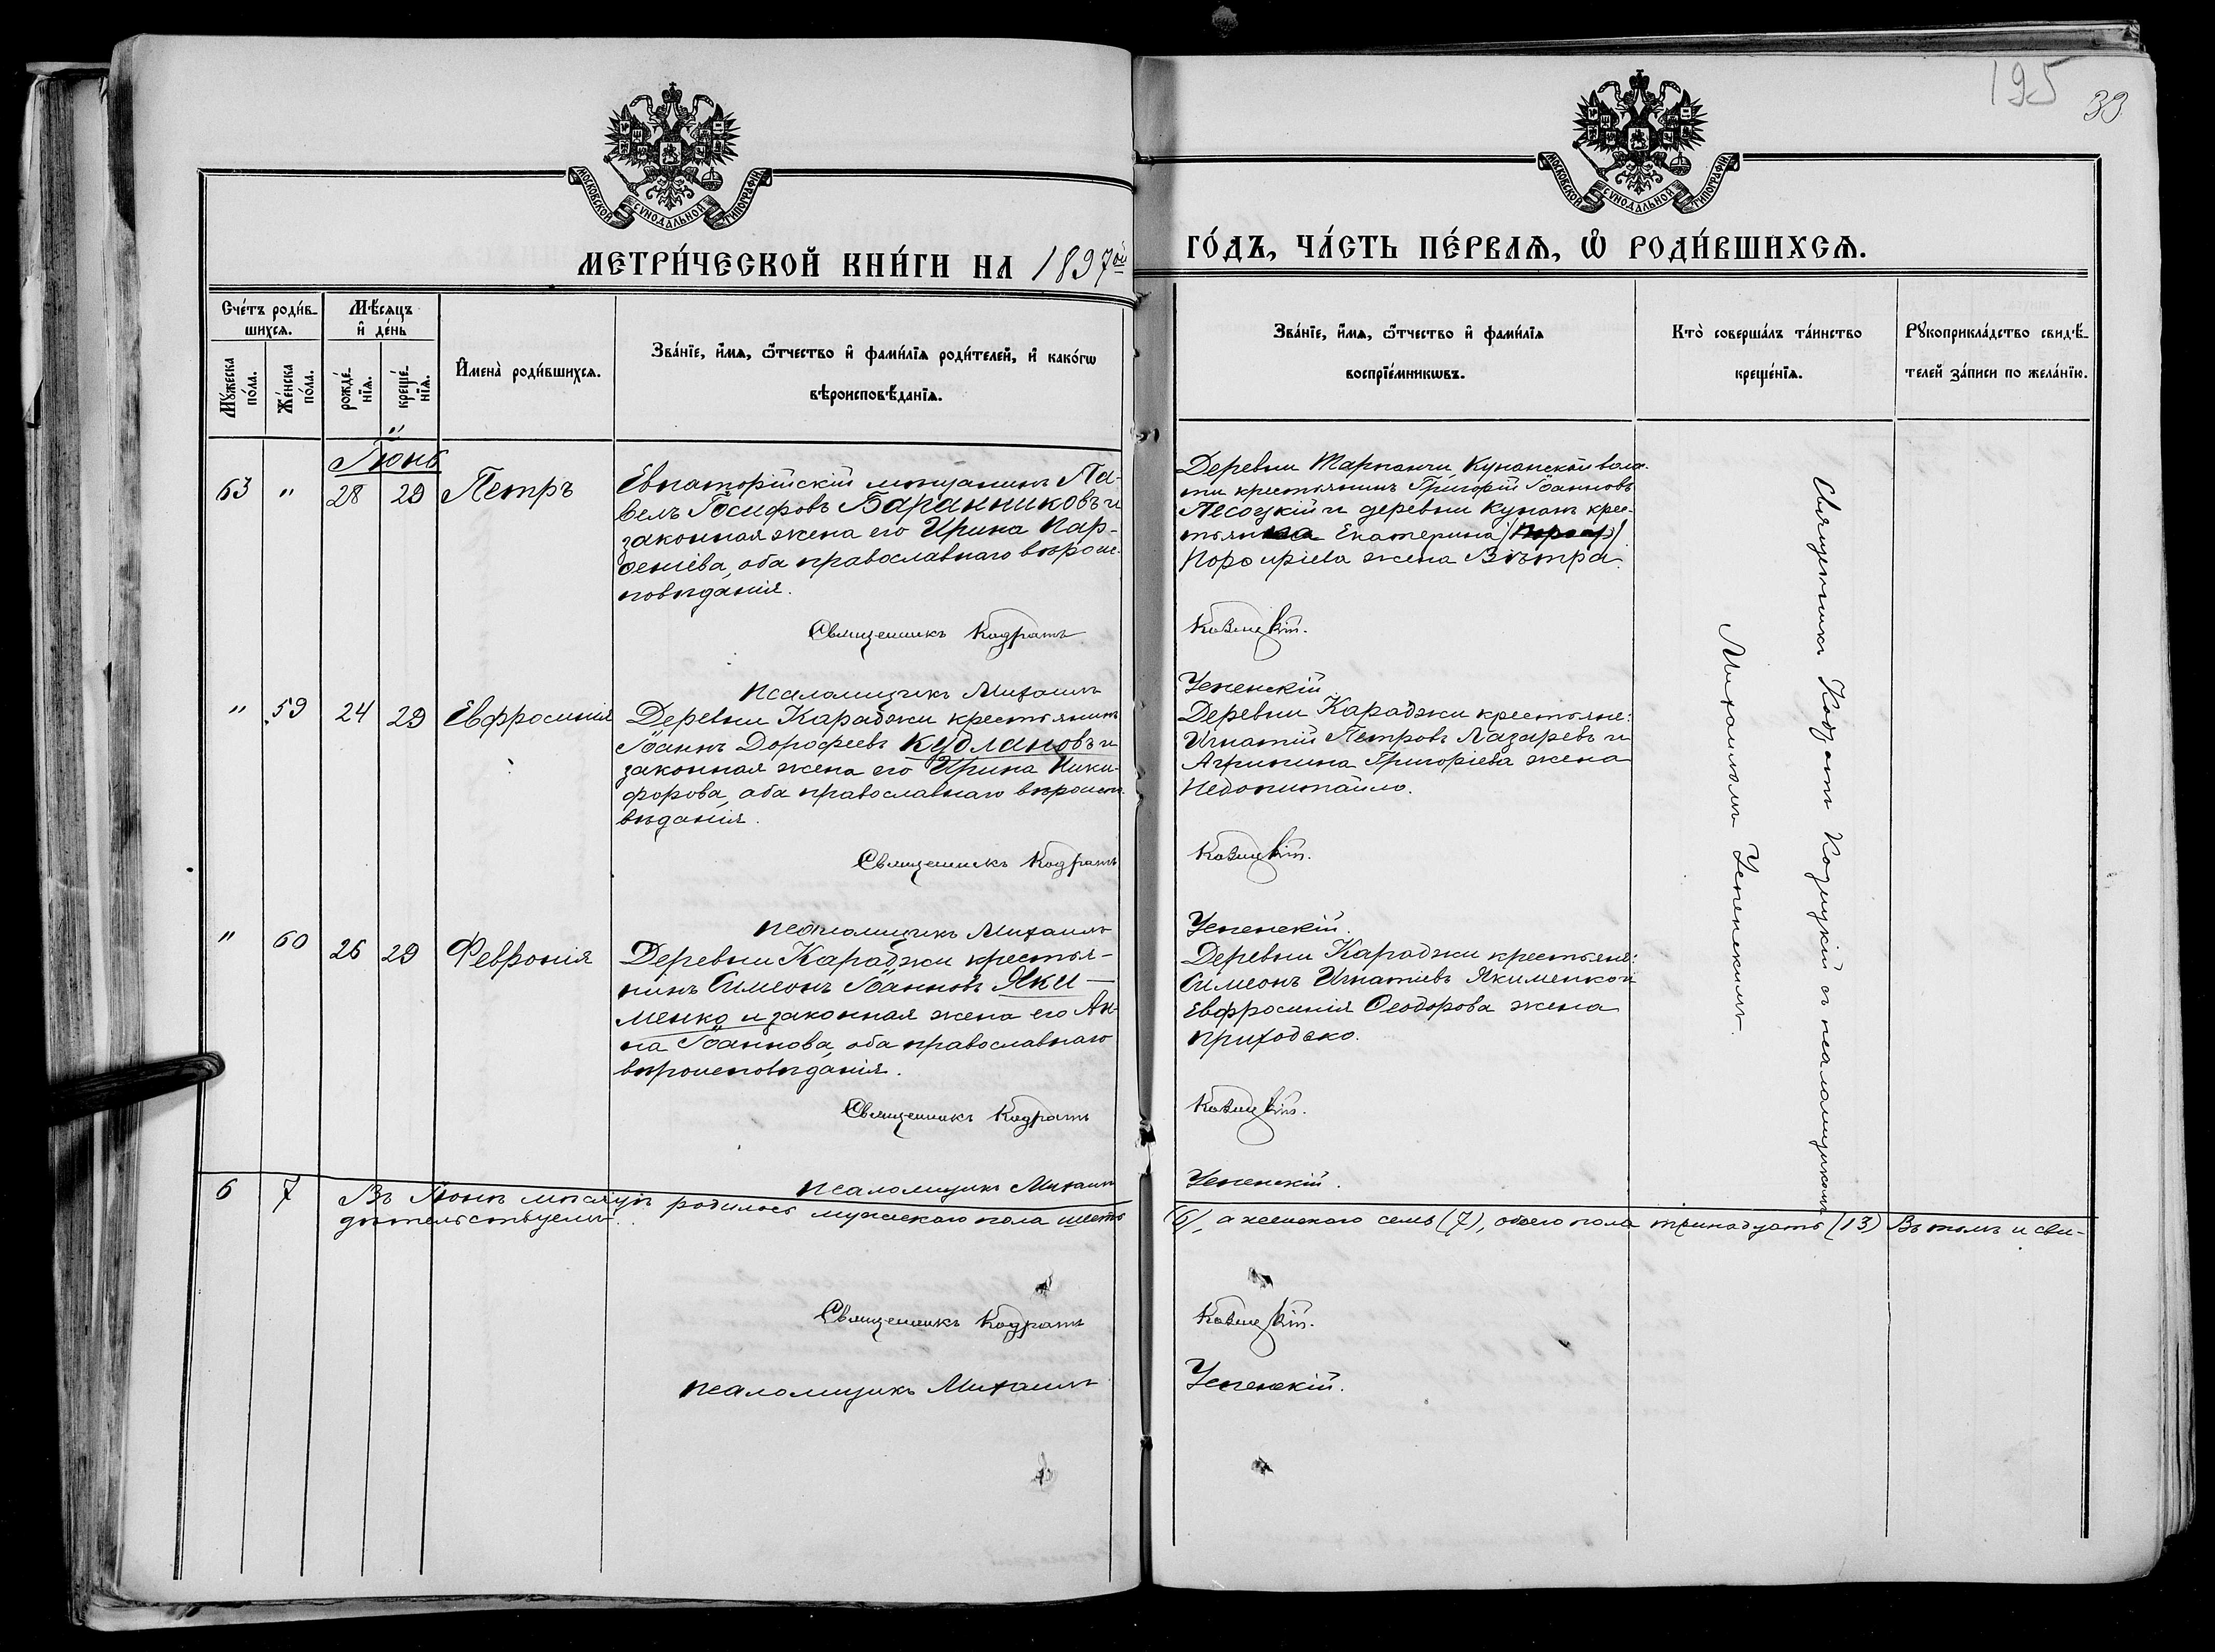 195
39
МОСКОВСКОЙ СѴНОДАЛЬНОЙ ТИПОГРАФІИ
МОСКОВСКОЙ СѴНОДАЛЬНОЙ ТИПОГРАФІИ
МЕТРИ́ЧЕСКОЙ КНИ́ГИ НА 1897ой
ГО́ДЪ, ЧА́СТЬ ПЕ́РВАѦ, Ѡ҆ РОДИ́ВШИХСѦ.
Сче́тъ роди́в-
шихсѧ.
Мꙋжеска по́ла.
Же́нска по́ла.
Мѣ́сѧцъ
и҆ де́нь
рожде́-
нїѧ.
креще́-
нїѧ.
И҆мена̀ роди́вшихсѧ.
Зва́нїе, и҆́мѧ, ѻ҆́тчество и҆ фами́лїѧ роди́телей, и҆ како́гѡ
вѣроисповѣ́данїѧ.
Зва́нїе, и҆́мѧ, ѻ҆́тчество и҆ фами́лїѧ
воспрїе́мникѡвъ.
Кто̀ соверша́лъ та́инство
креще́нїѧ.
Рꙋкоприкла́дство свидѣ́-
телей за́писи по жела́нїю.
Іюнь
63 " 28 29 Петръ
Евпаторійскій мѣщанинъ Па-
велъ Іосифовъ Баранниковъ и
законная жена его Ирина Пар-
ѳеніева, оба православнаго вѣроис-
повѣданія.
Священникъ Кодратъ
Псаломщикъ Михаилъ
Деревни Тарпанчи Кунанской воло-
сти крестьянинъ Григорій Іоанновъ
Песоцкій и деревни Кунанъ крес-
тьянка Екатерина
Порфиріева жена Вѣтра.
Успенскій.
" 59 24 29 Евфросинія
Деревни Караджи крестьянинъ
Іоаннъ Дорофеевъ Кудлановъ и
законная жена его Ирина Ники-
форова, оба православнаго вѣроиспо-
вѣданія.
Священникъ Кодратъ
Псаломщикъ Михаилъ
Деревни Караджи крестьяне:
Игнатій Петровъ Лазаревъ и
Агрипина Григоріева жена
Недопитайло.
Успенскій.
" 60 26 29 Феврония
Деревни Караджи крестья-
нинъ Симеонъ Іоанновъ Яки-
менко и законная жена его Ан-
на Іоаннова, оба православнаго
вѣроисповѣданія.
Священникъ Кодратъ
Псаломщикъ Михаилъ
Деревни Караджи крестьяне:
Симеонъ Игнатіевъ Якименко и
Евфросинія Ѳеодорова жена
Приходько.
Успенскій.
Священникъ Кодратъ съ псаломщикомъ
Михаиломъ Успенскимъ.
6 7 Въ Іюнѣ мѣсяцѣ родилось мужескаго пола шесть (6), а женскаго семь (7), обоего пола тринадцать (13) Въ томъ и сви-
дѣтельствуемъ.
Священникъ Кодратъ
Псаломщикъ Михаилъ Успенскій.